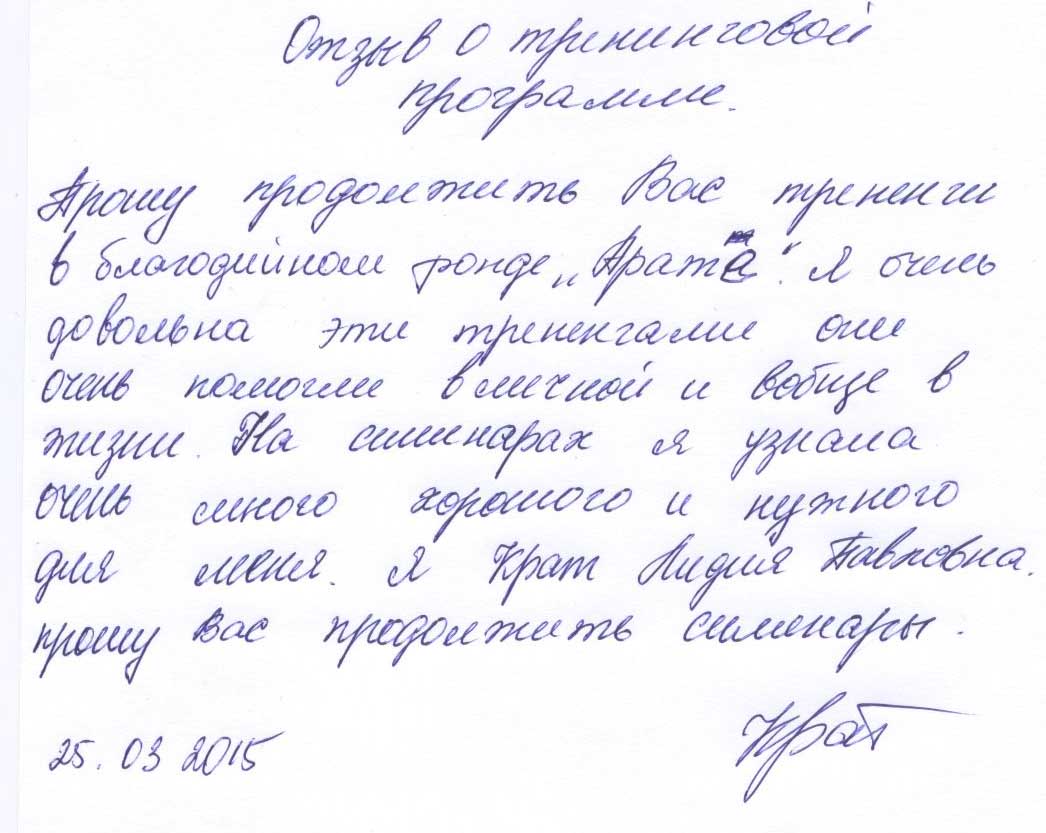 Отзыв о тренинговой
программе.
Прошу продолжить Вас трененги
в благодийном фонде „Аратта". Я очень
довольна эти тренингами они
очень помогли в личной и вобще в
жизни. На симинарах я узнала
очень много хорошого и нужного
для меня. Я Крат Лидия Павловна.
прошу Вас продолжить симинары.
25.03 2015
Крат